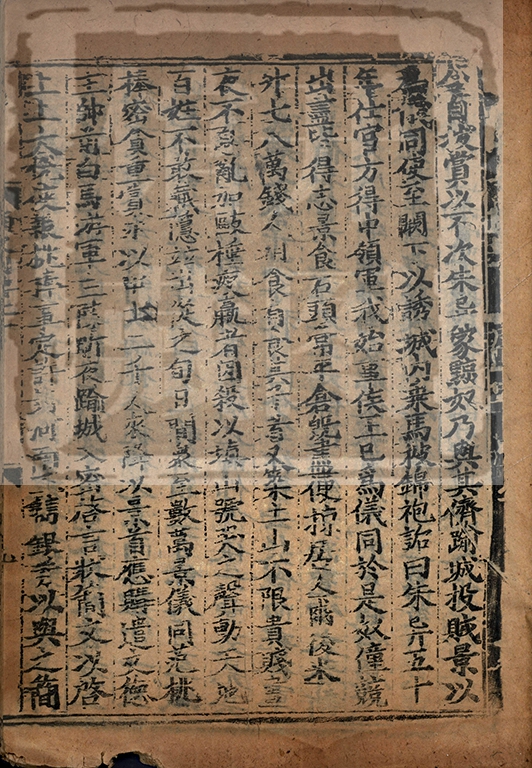 奴並皆抜賞以不次朱异家黥奴乃與其儕踰城投賊景以
爲儀同使至闕下以誘城内乗馬披錦袍詬曰朱异五十
年仕官方得中領軍我始事侯王已爲儀同於是奴僮競
出盡皆得志景食石頭常平倉既盡便掠居人爾後米
升七八萬錢人相食有食其子者又築土山不限貴賤晝
夜不息亂加歐棰疲羸者因殺以塡山號哭之聲動天地
百姓不敢藏隱並出從之旬日間衆至數萬景儀同范桃
棒密貪重賞求以甲士二千人來降以景首應購遣文德
主帥前白馬游軍主陳昕夜踰城入密啓言狀簡文以啓
上上大悦使報桃棒事定許封河南王鐫銀券以與之簡